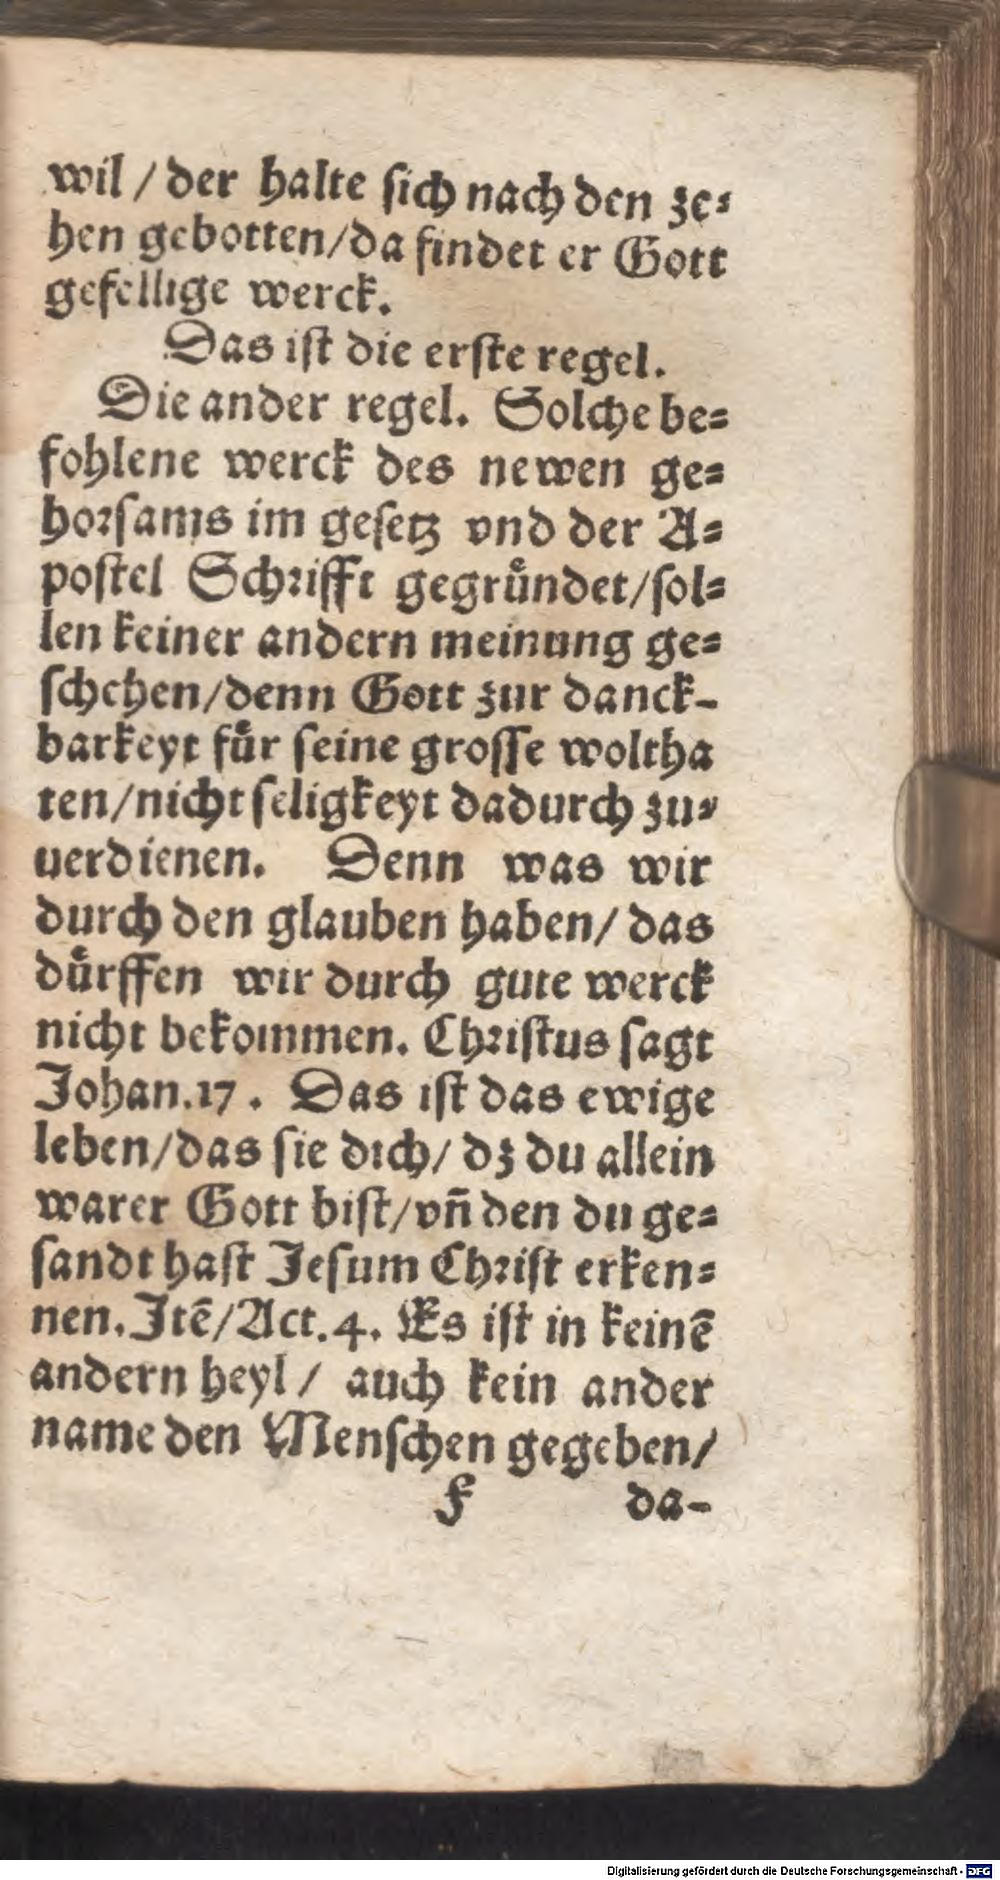 wil / der halte ſich nach den ze⸗
hen gebotten/da findet er Gott
gefellige werck.
Das iſt die erſte regel.
Die ander regel. Solche be⸗
fohlene werck des newen ge⸗
horſams im geſetz vnd der A⸗
poſtel Schrifft gegruͤndet/ſol⸗
len keiner andern meinung ge⸗
ſchehen/denn Gott zur danck-
barkeyt fuͤr ſeine groſſe woltha
ten/nicht ſeligkeyt dadurch zu⸗
uerdienen. Denn was wir
durch den glauben haben/ das
duͤrffen wir durch gute werck
nicht bekommen. Chriſtus ſagt
Johan.17. Das iſt das ewige
leben/das ſie dich/ dz du allein
warer Gott biſt/vñ den du ge⸗
ſandt haſt Jeſum Chriſt erken⸗
nen. Jtē/Act.4. Es iſt in keinē
andern heyl / auch kein ander
name den Menſchen gegeben/
f da-
Digitalisierung gefördert durch die Deutsche Forschungsgemeinschaft - DFG